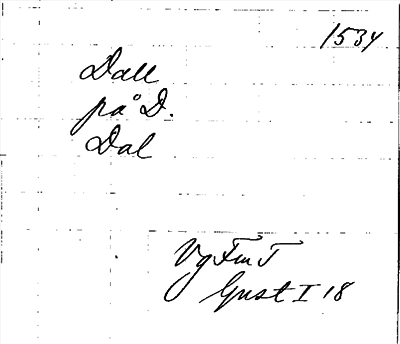 1534
Dall
på D.
Dal
Vg Fm T
Gust I 18